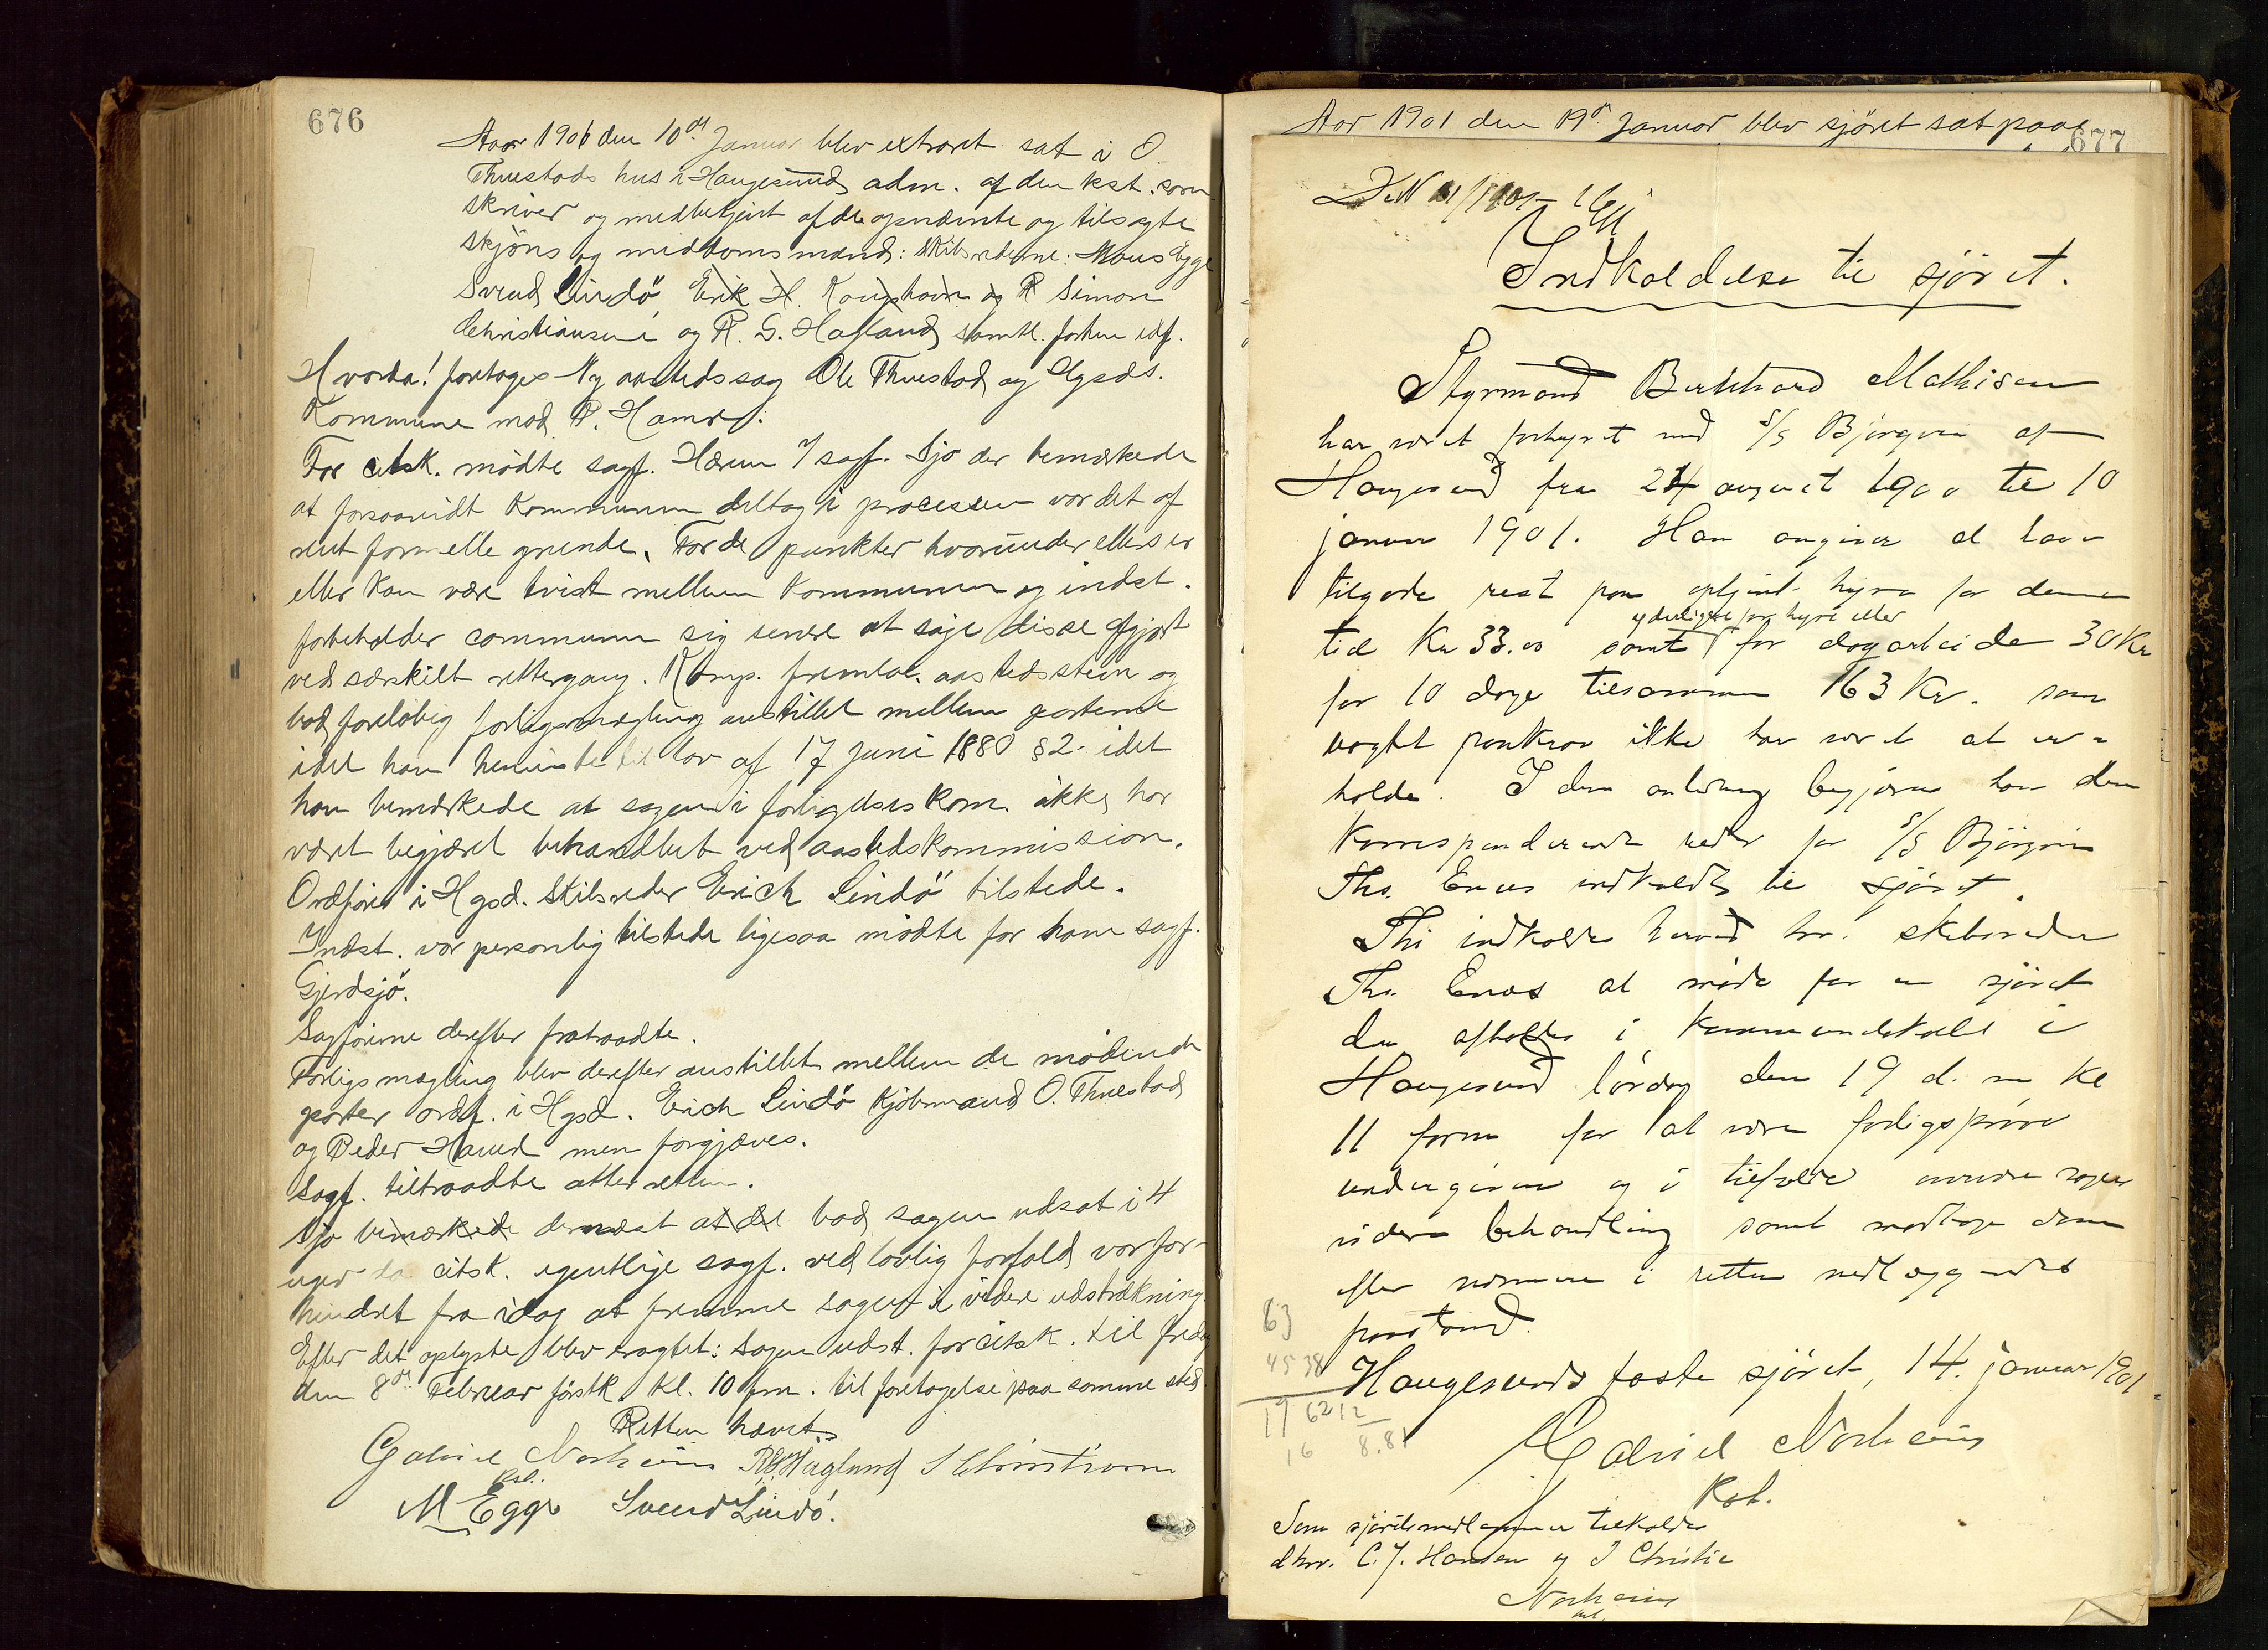 676
Aar 1901 den 10de Januar blev extraret sat i O.
Thuestads hus i Haugesund adm. af den kst. soren
skriver og medbetjent af de opnævnte og tilsagte
skjöns og meddomsmænd: Skibsrederne: Mons Egge
Svend Lindö, Erik H. Kongshavn og R Simon
Christiansen og R. G. Hagland samtl. forhen edf.
Hvorda! foretoges Ny aastedssag Ole Thuestad og Hgsds.
Kommune mod P. Hamre:
For citsk. mödte sagf. Hærem v/ sagf. Sjo der bemærkede
at forsaavidt Kommunen deltog i processen var det af
rent formelle grunde. For de punkter hvorunder ellers er
eller kan være tvist mellem Kommunen og indst.
forbeholder communen sig senere at söge disse afgjort
ved særskilt rettergang. Komp. fremlæ. aastedsstevn og
bad foreløbig forligsmægling anstillet mellem parterne
idet han henviste til lov af 17 Juni 1880 § 2. idet
han bemærkede at sagen i forligelseskom. ikke har
været begjæret behandlet ved aastedskommission.
Ordförer i Hgsd. Skibsreder Erich Lindö tilstede.
Indst. var personlig tilstede ligesaa mödte for ham sagf.
Gjerdsjö.
Sagförerne derefter fratraadte.
Forligsmægling blev derefter anstillet mellem de mödende
parter ordf. i Hgsd. Erich Lindö Kjöbmand O. Thuestad
og Peder Hamre men forgjæves.
Sagf. tiltraadte atter retten.
Sjo bemærkede dernæst at det bad sagen udsat i 4
uger da citsk. egentlige sagf. ved lovlig forfald var for-
hindret fra idag at fremme sagen i videre udstrækning.
Efter det oplyste blev eragtet: Sagen udst. for citsk. til fredag
den 8de Februar förstk. kl. 10 fm. til foretagelse paa samme sted.
Retten hævet.
Gabriel Norheim RG Hagland S Christiansen
kst.
M Egge Svend Lindö.
Aar 1901 den 19de Januar blev sjöret sat paa
677
Indkaldelse til sjöret.
Styrmand Bernhard Mathisen
har været forhyret med S/S Björgvin af
Haugesund fra 24 august 1900 til 10
januar 1901. Han angiver at have
tilgode rest paa optjent hyre for denne
yderligere for hyre eller
tid Kr 33.00 samt for dagarbeide 30 Kr
for 10 dage tilsammen 163 Kr. som
uagtet paakrav ikke har været at er-
holde. I den anledning begjærer han den
korresponderende reder for S/S Björgvin
Ths. Enæs indkaldt til sjöret.
Thi indkaldes herved hr. skibsreder
Ths. Enæs at möde for en sjöret
der afholdes i Kommunelokalet i
Haugesund lördag den 19 d. m Kl
11 form for at være forligspröve
undergiven og i tilfælde anvendre sagens
videre behandling samt modtage dom
efter nærmere i retten nedlæggende
paastand.
63
45 38
19 62 12
16 8.81
Haugesunds faste sjöret, 14. januar 1901.
Gabriel Norheim
Kst.
Som sjöretsmedlemmer tilkaldes
dhrr. C. J. Hansen og J Christie
Norheim
kst.